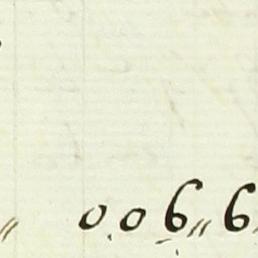 〃 006〃6